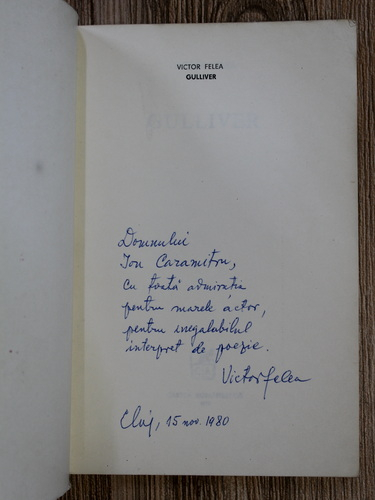 VICTOR FELEA
GULLIVER
GULLIVER
Domnului
Ion Caramitru,
cu toată admirația
pentru marele actor,
pentru inegalabilul
interpret de poezie.
Victor Felea
Cluj, 15 nov. 1980